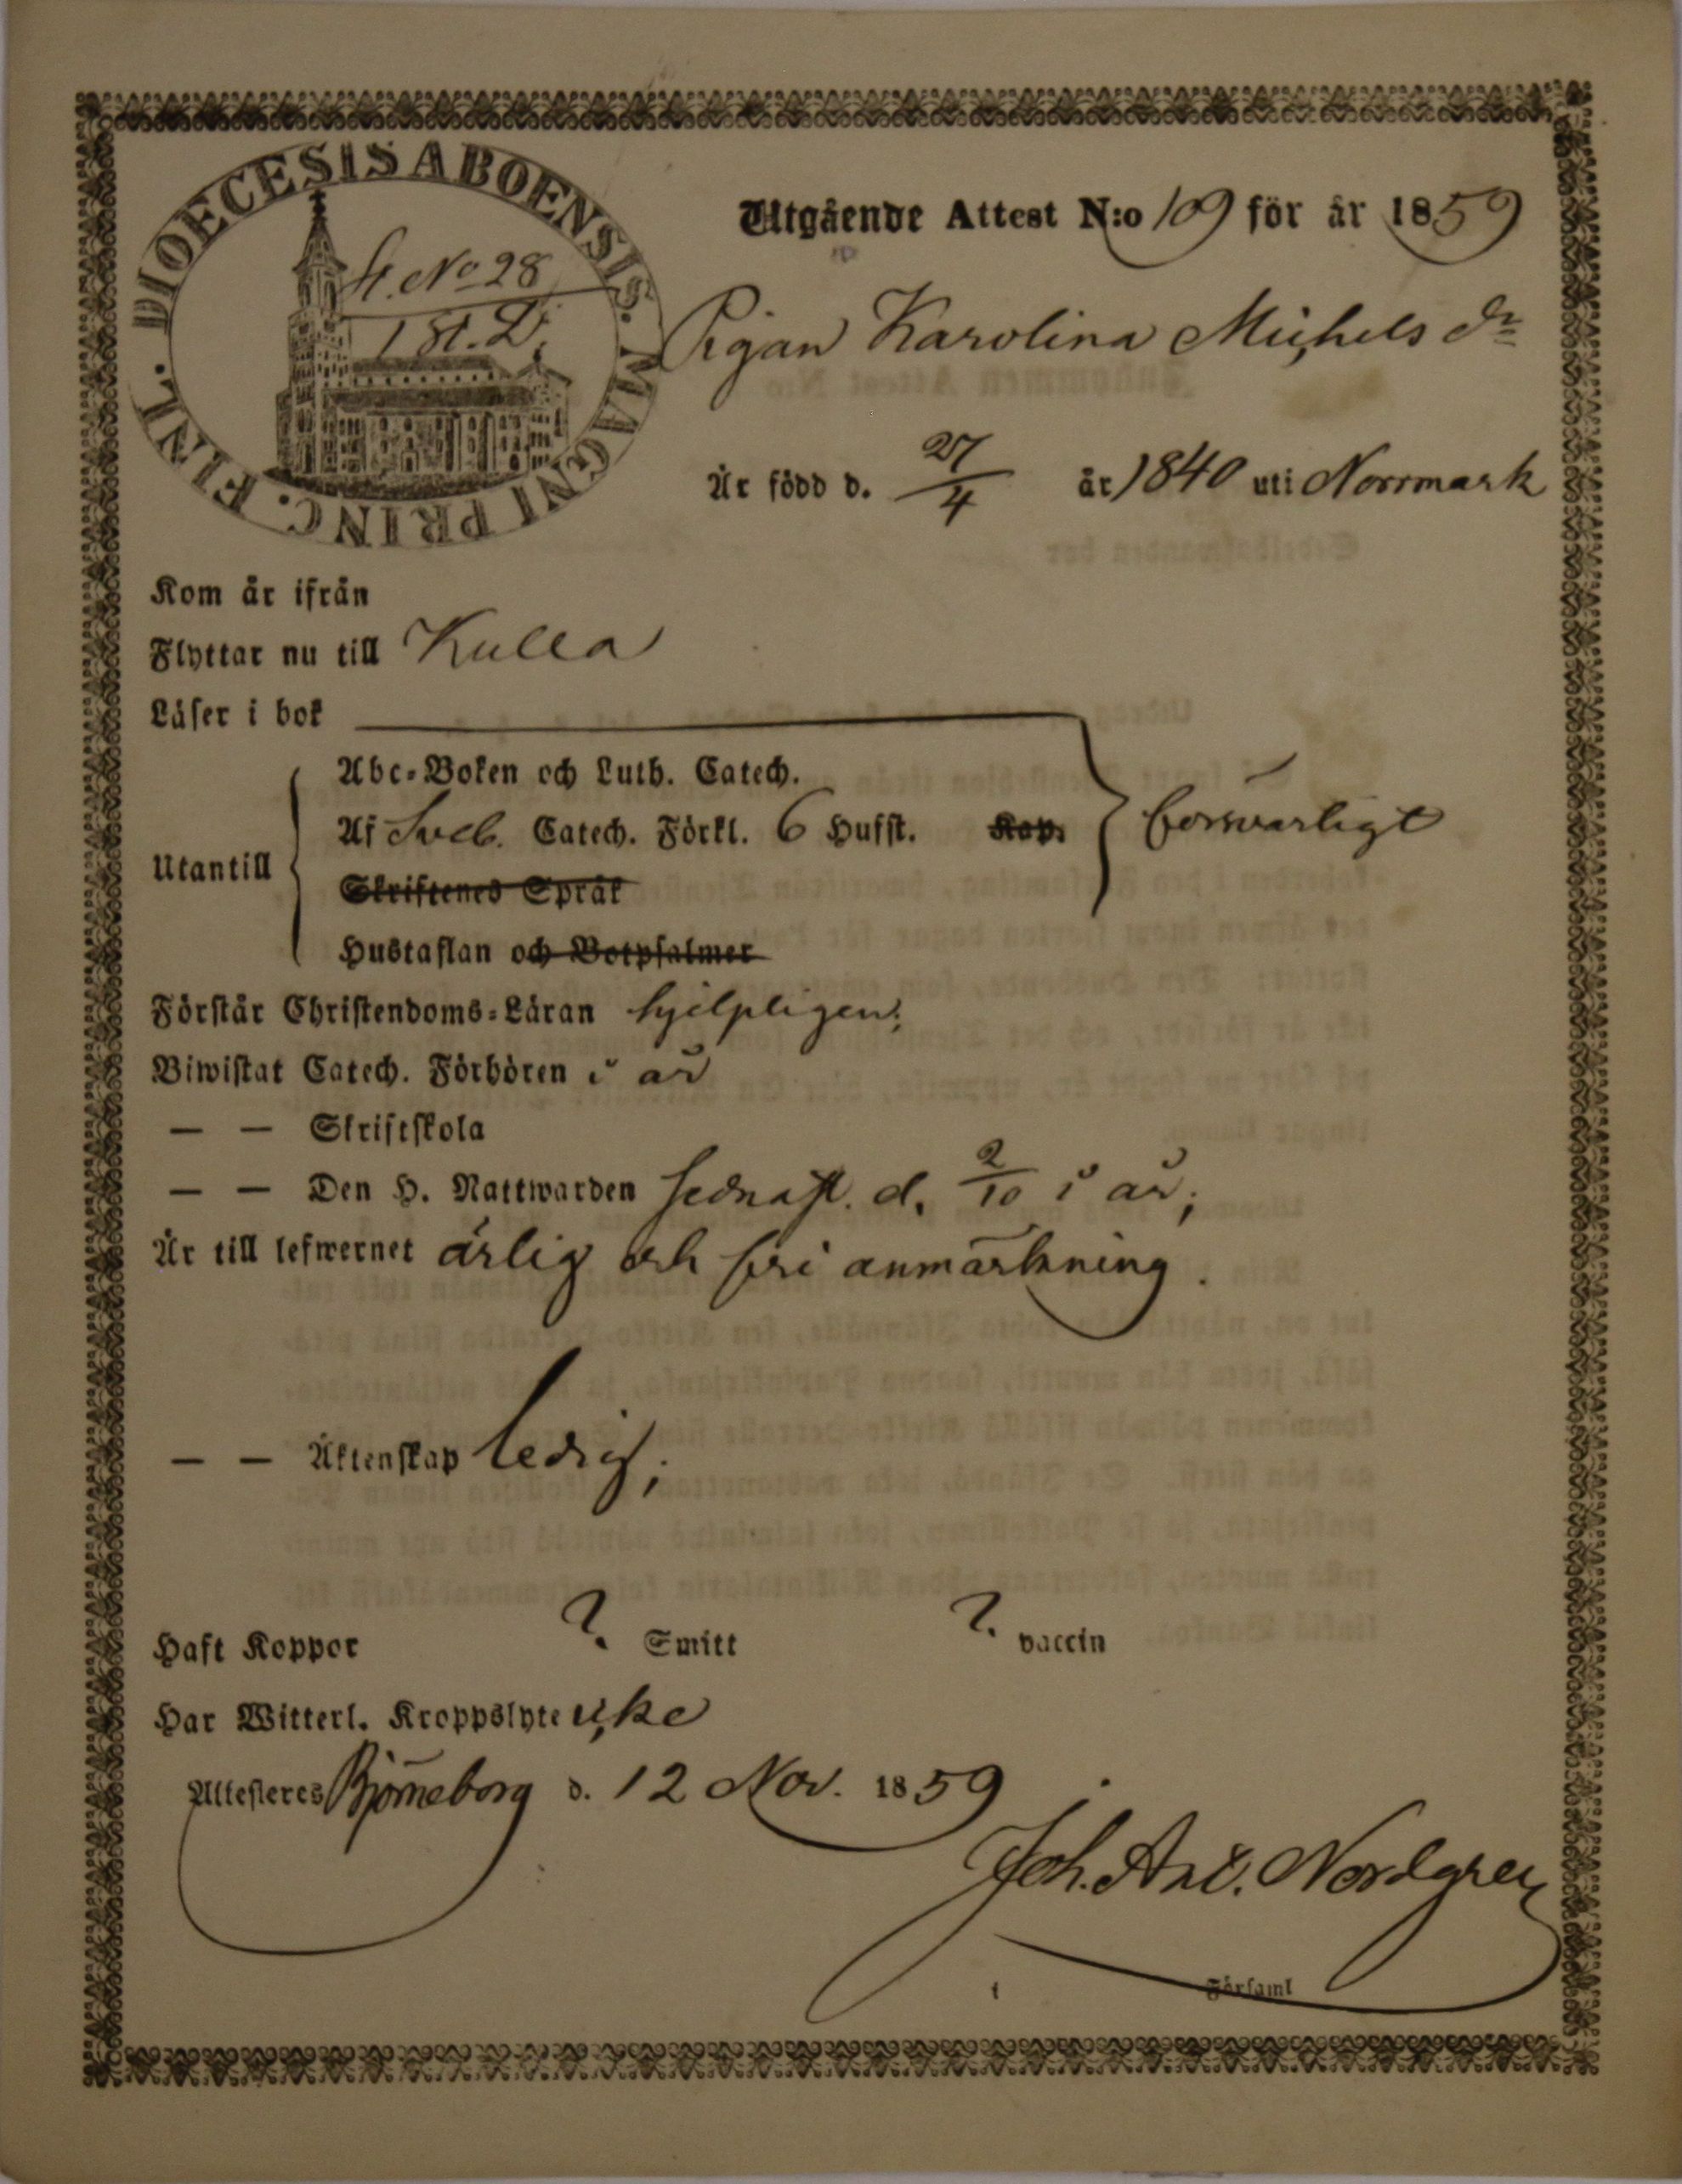 DIOECESIS ABOENSIS. MAGNI PRINC. FINL.
N:o 28
1 St. D.
Utgående Attest N:o 109 för år 1859
Pigan Karolina Michels dr
Är född d. 27/4 år 1840 uti Norrmark
Kom år ifrån
Flyttar nu till Kulla
Läser i bok
Utantill
Abc-Boken och Luth. Catech.
Af Sveb. Catech. Förkl. 6 Hufst. Kap.
försvarligt
Skriftenes Språk
Hustaflan och Botpsalmer
Förstår Christendoms-Läran hjelpligen;
Biwistat Catech. Förhören i år
— — Skriftskola
— — Den H. Nattwarden sednast. d. 2/10 i år;
Är till lefwernet ärlig och fri anmärkning.
— — Äktenskap ledig;
Haft Koppor ? Smitt ? vaccin
Har Witterl. Kroppslyte icke
Attesteres Björneborg d. 12 Nov. 1859
Joh. Axl. Nordgren
i Församl